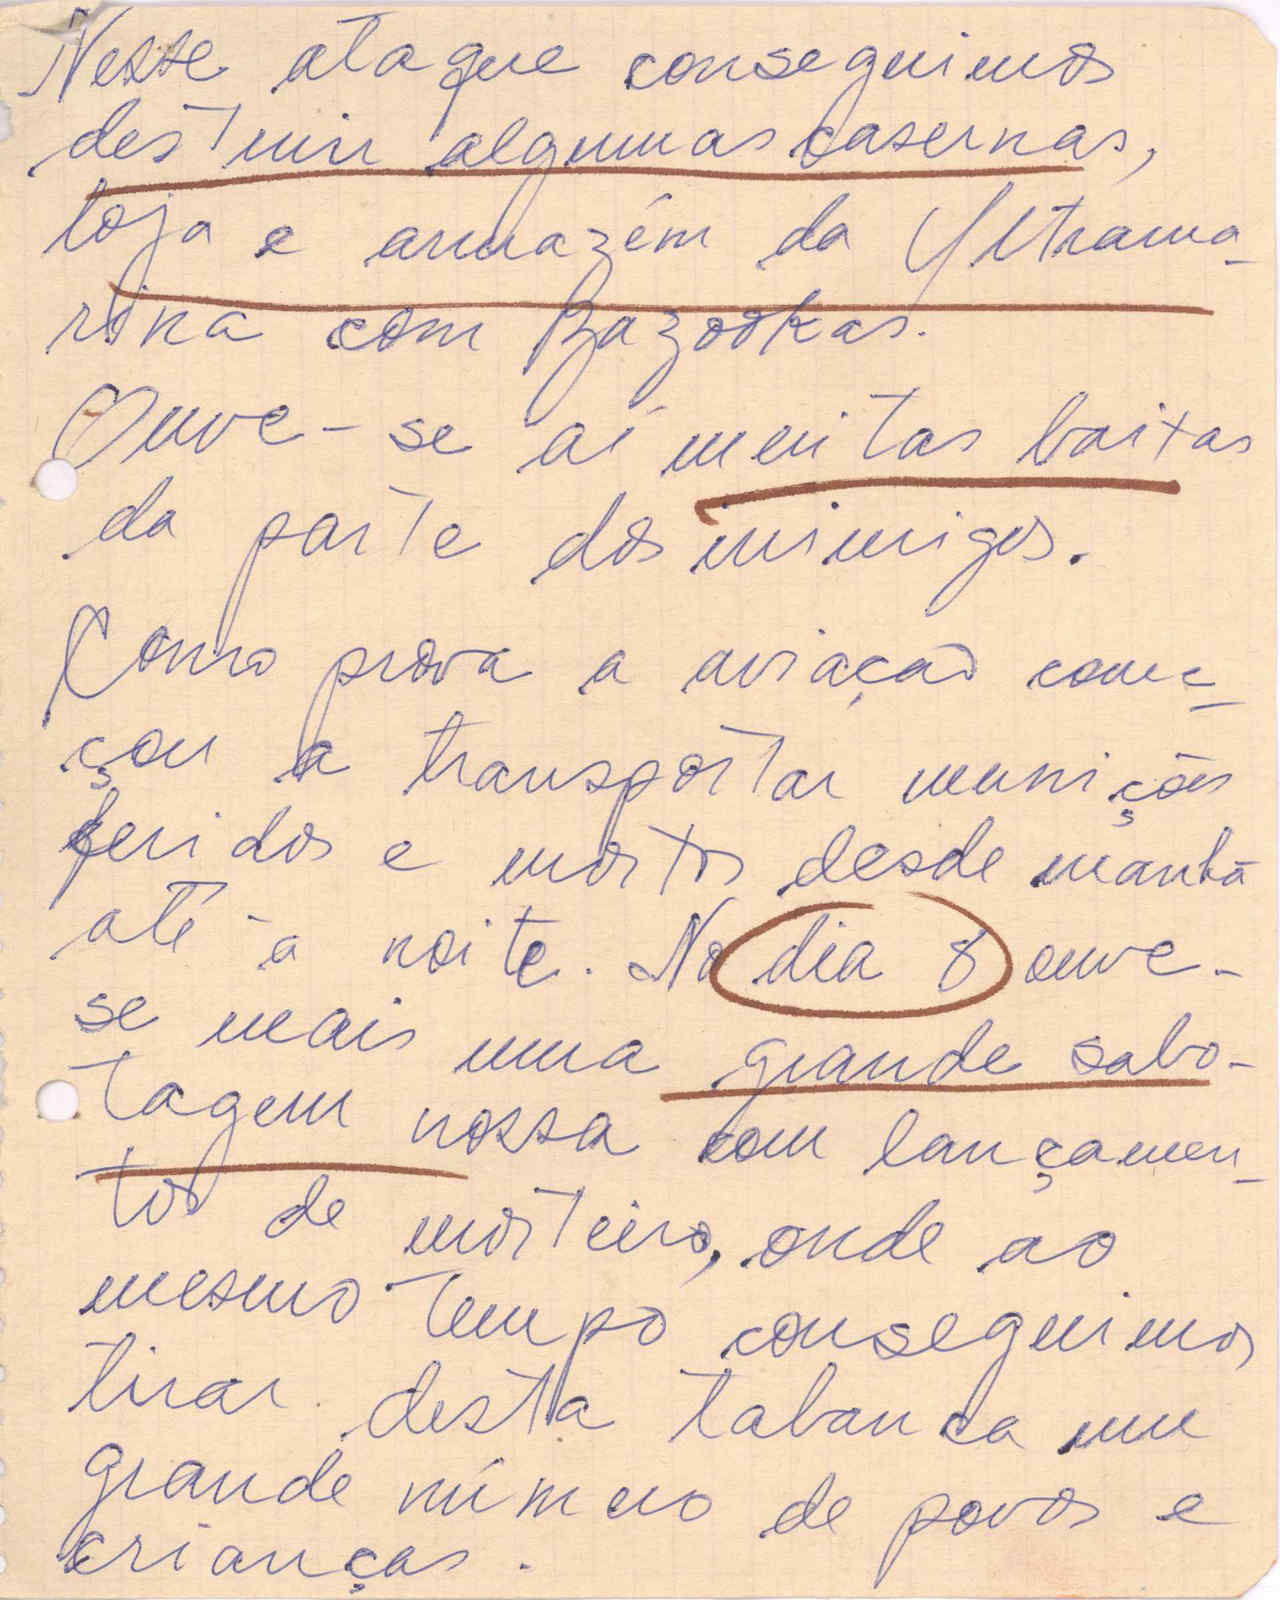 Nesse ataque conseguimos
destruir algumas casernas,
loja e armazém da Ultrama-
rina com Bazookas.
Ouve-se aí muitas baixas
da parte dos inimigos.
Como prova a aviação come-
çou a transportar munições
feridos e mortos desde manhã
até à noite. No dia 8 ouve-
se mais uma grande sabo-
tagem nossa com lançamen-
tos de morteiro, onde ao
mesmo tempo conseguimos
tirar desta tabanca um
grande número de povos e
crianças.